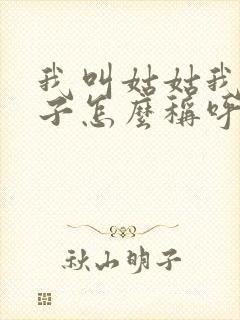 我叫姑姑我
子怎麼稱呼
秋山明子